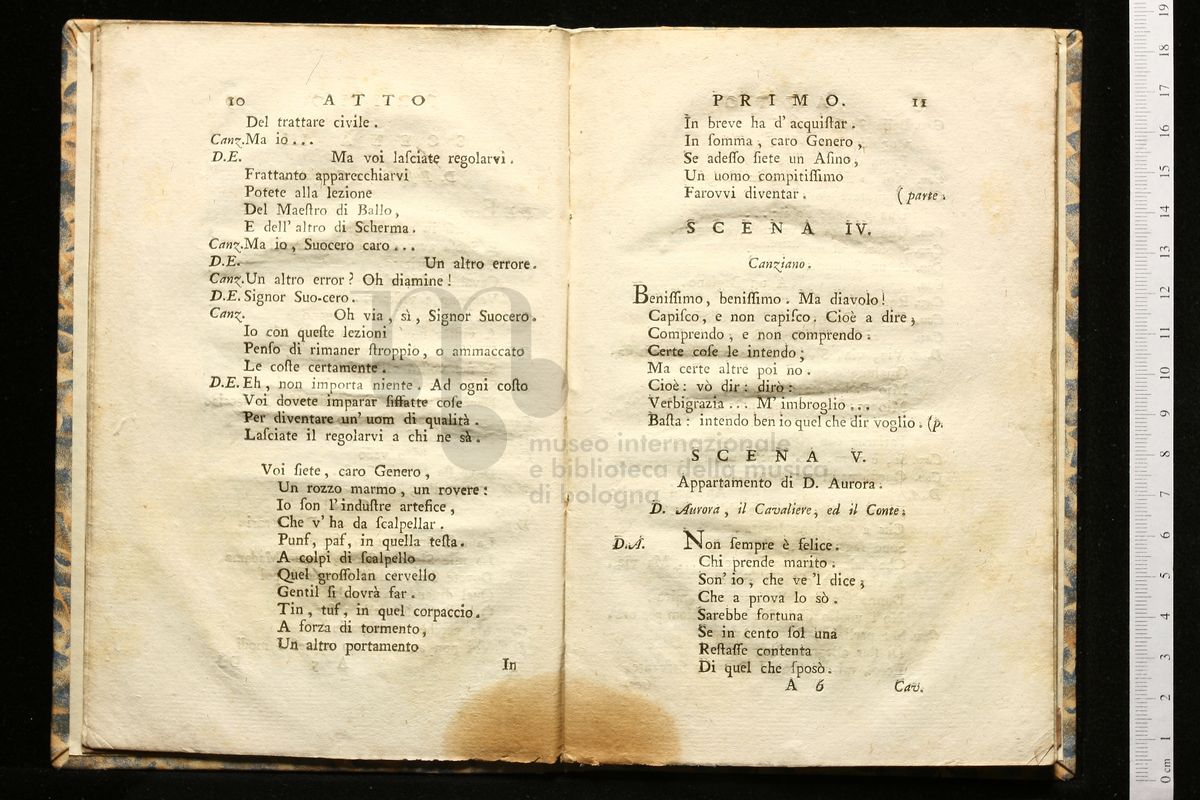 10 ATTO
Del trattare civile.
Canz. Ma io...
D.E. Ma voi laſciate regolarvi.
Frattanto apparecchiarvi
Potete alla lezione
Del Maeſtro di Ballo,
E dell' altro di Scherma.
Canz. Ma io, Suocero caro...
D.E. Un altro errore.
Canz. Un altro error? Oh diamine!
D.E. Signor Suo-cero.
Canz. Oh via, sì, Signor Suocero.
Io con queſte lezioni
Penſo di rimaner ſtroppio, o ammaccato
Le coſte certamente.
D.E. Eh, non importa niente. Ad ogni coſto
Voi dovete imparar ſiffatte coſe
Per diventare un' uom di qualità.
Laſciate il regolarvi a chi ne sà.
Voi ſiete, caro Genero,
Un rozzo marmo, un rovere:
Io ſon l' induſtre artefice,
Che v' ha da ſcalpellar.
Punf, paf, in quella teſta.
A colpi di ſcalpello
Quel groſſolan cervello
Gentil ſi dovrà far.
Tin, tuf, in quel corpaccio.
A forza di tormento,
Un altro portamento
In
PRIMO. 11
In breve ha d' acquiſtar.
In ſomma, caro Genero,
Se adeſſo ſiete un Aſino,
Un uomo compitiſſimo
Farovvi diventar. (parte.
SCENA IV.
Canziano.
Beniſſimo, beniſſimo. Ma diavolo!
Capiſco, e non capiſco. Cioè a dire;
Comprendo, e non comprendo:
Certe coſe le intendo;
Ma certe altre poi no.
Cioè: vò dir: dirò:
Verbigrazia... M' imbroglio...
Baſta: intendo ben io quel che dir voglio. (p.
SCENA V.
Appartamento di D. Aurora.
D. Aurora, il Cavaliere, ed il Conte.
D.A. Non ſempre è felice.
Chi prende marito:
Son' io, che ve 'l dice;
Che a prova lo sò.
Sarebbe fortuna
Se in cento ſol una
Reſtaſſe contenta
Di quel che ſposò.
A 6 Cav.
museo internazionale
e biblioteca della musica
di bologna
0 cm 1 2 3 4 5 6 7 8 9 10 11 12 13 14 15 16 17 18 19